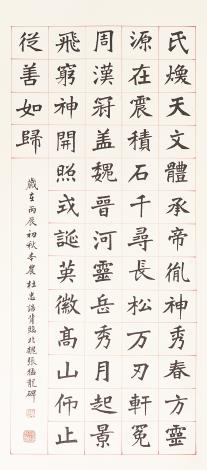 氏煥天文體承帝胤神秀春方靈
源在震積石千尋長松万刃軒冕
周漢冠盖魏晉河靈岳秀月起景
飛窮神開照式誕英徽高山仰止
從善如歸
歲在丙辰初秋李農杜忠誥背臨北魏張猛龍碑